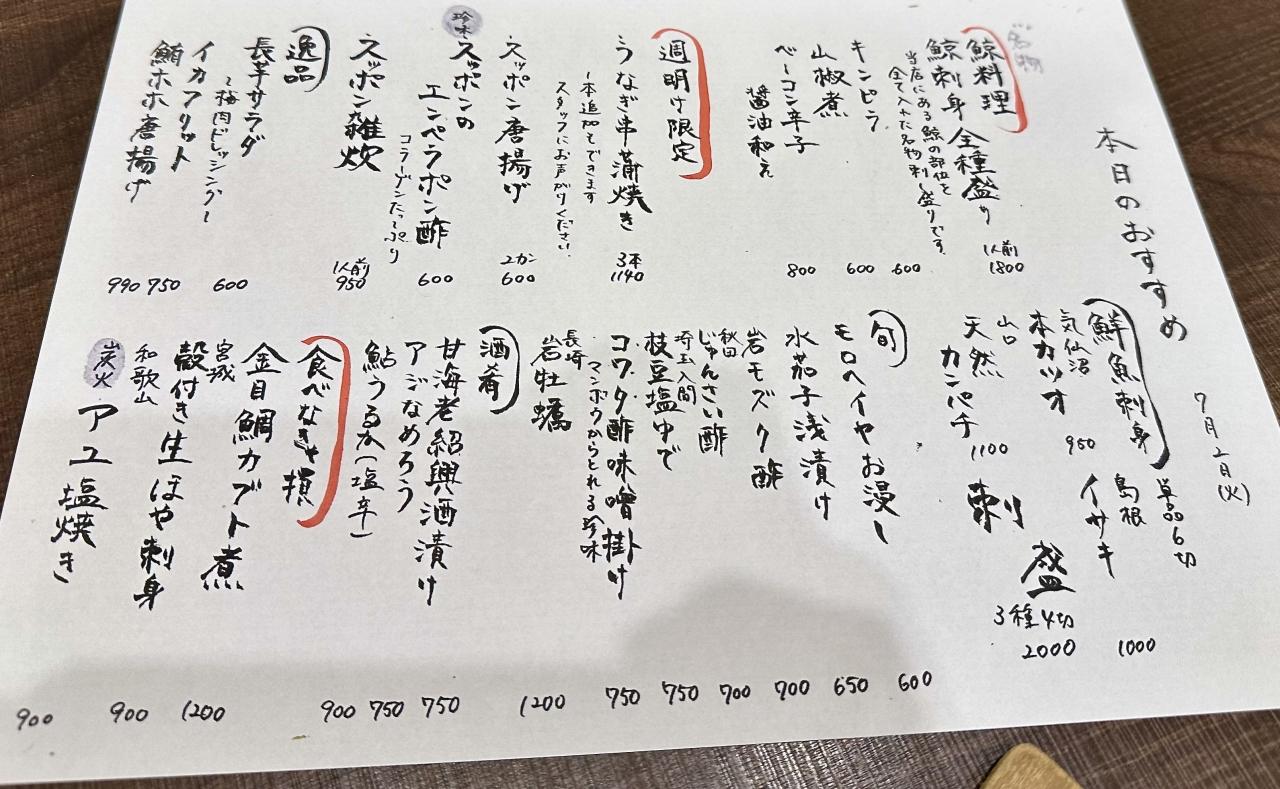 本日のおすすめ
7月2日(火)
名物
鯨料理
鯨刺身 全種盛り 1人前 1800
当店にある鯨の部位を
全て入れた名物刺し盛りです。
キンピラ 600
山椒煮 600
ベーコン辛子
醤油和え 800
週明け限定
うなぎ串蒲焼き 3本 1140
一本追加もできます
スタッフにお声がけください。
スッポン唐揚げ 2カン 600
珍味
スッポンの
エンペラポン酢 600
コラーゲンたっぷり
スッポン雑炊 1人前 950
逸品
長芋サラダ 600
〜梅肉ドレッシング〜
イカフリット 750
鮪ホホ唐揚げ 990
鮮魚刺身 単品6切
島根
イサキ 1000
気仙沼
本カツオ 950
山口
天然
カンパチ 1100
刺盛
3種4切
2000
旬
モロヘイヤお浸し 600
水茄子浅漬け 650
岩モズク酢 700
秋田
じゅんさい酢 700
埼玉入間
枝豆塩ゆで 750
コワタ酢味噌掛け 750
マンボウからとれる珍味
長崎
岩牡蠣 1200
酒肴
甘海老紹興酒漬け 750
アジなめろう 750
鮎うるか(塩辛) 900
食べなきゃ損
金目鯛カブト煮 1200
宮城
殻付き生ほや刺身 900
和歌山
炭火
アユ塩焼き 900